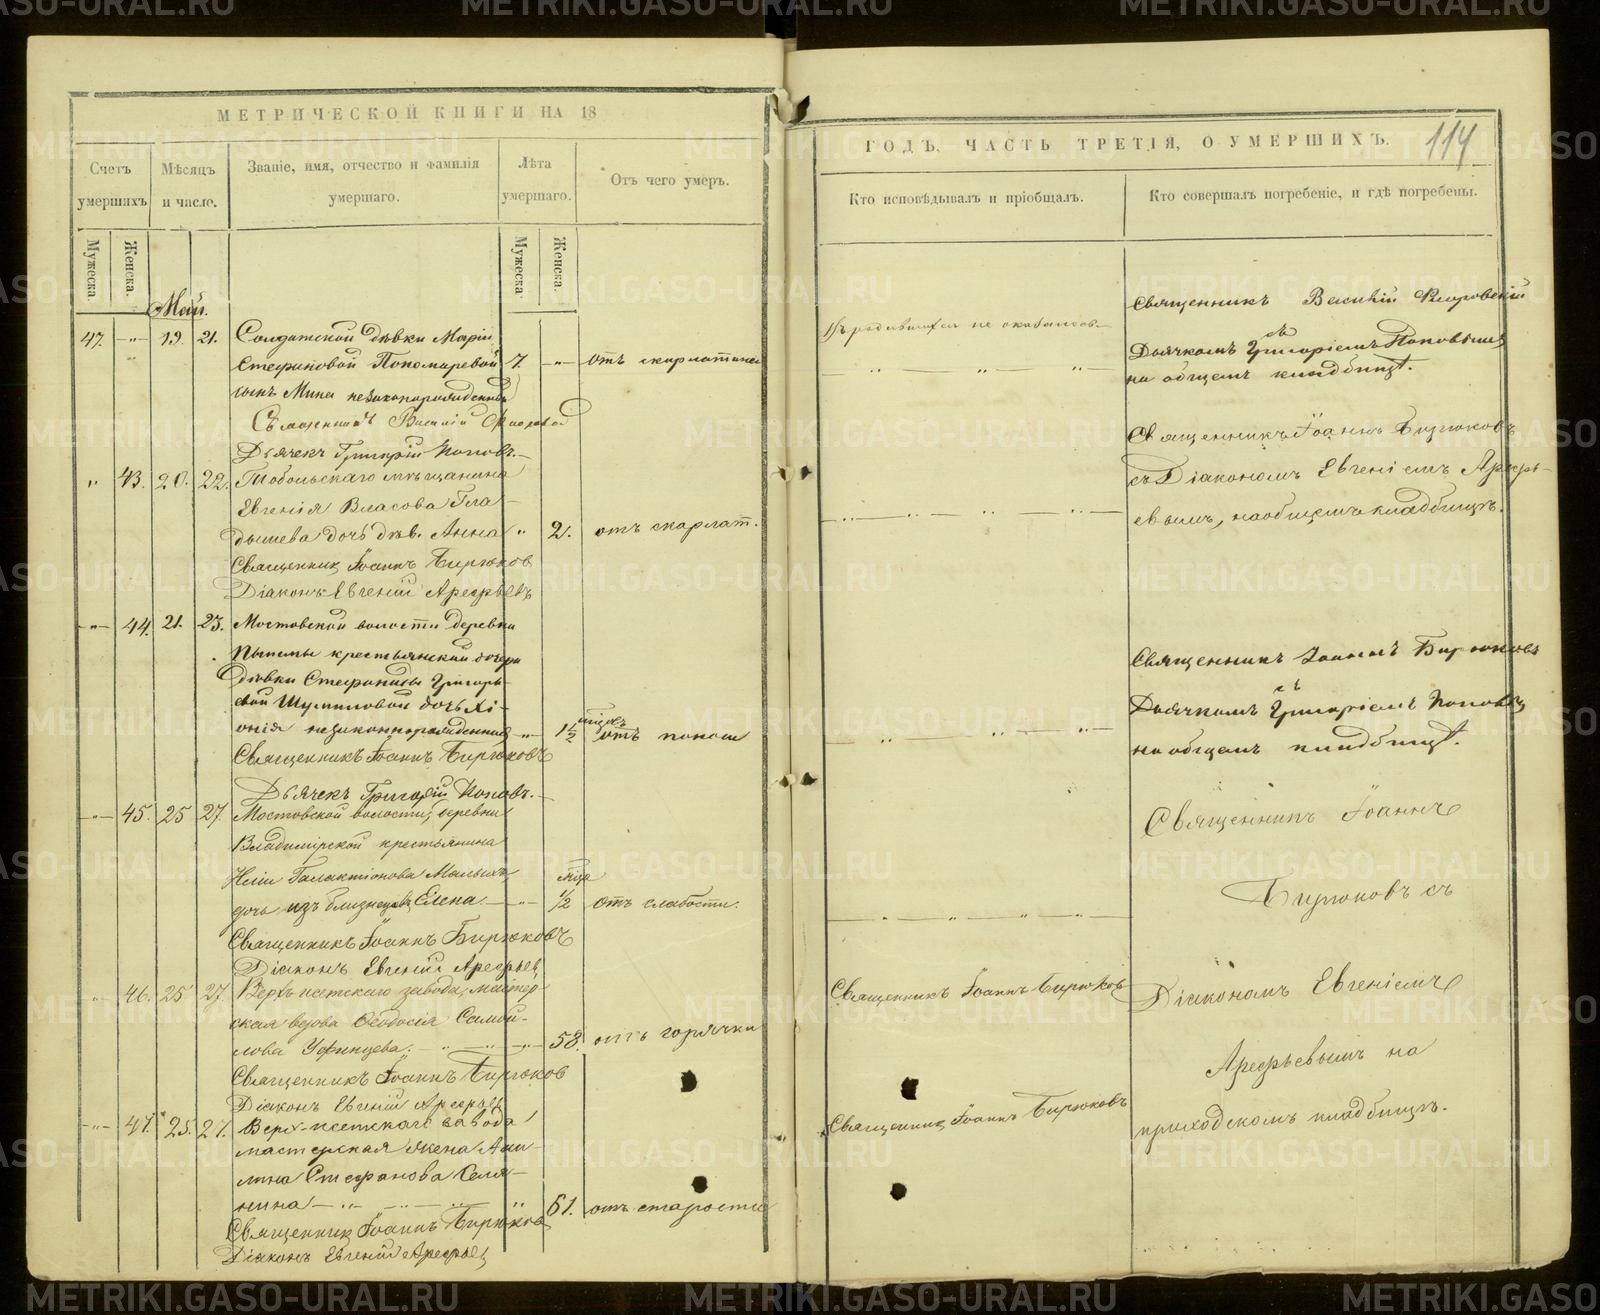 МЕТРИЧЕСКОЙ КНИГИ НА 18
Счетъ умершихъ
Мѣсяцъ и число.
Званіе, имя, отчество и фамилія умершаго.
Лѣта умершаго.
Отъ чего умеръ.
Мужеска.
Женска.
Мужеска.
Женска.
Май.
47. 19. 21. Солдатской дѣвки Маріи
Стефановой Пономаревой 7. отъ скарлатины
сынъ Мина незаконнорожденный
Священникъ Василій
Дьячекъ Григорій Поповъ.
43. 20. 22. Тобольскаго мѣщанина
Евгенія Власова Гла-
дышева дочь дѣв. Анна 2. отъ скарлат.
Священник Іоаннъ Бирюков
Діаконъ Евгеній Арефьевъ
44. 21. 23. Мостовской волости деревни
Пышмы крестьянской дочери
дѣвки Стефаниды Григорь-
евой Шумиловой дочь Хі-
онія незаконнорожденная 1½ отъ поноса
Священникъ Іоаннъ Бирюковъ
Дьячекъ Григорій Поповъ.
45. 25 27. Мостовской волости, деревни
Владимірской крестьянина
Иліи Галактіонова Малыхъ
дочь изъ близнецовъ Елена. ½ отъ слабости.
Священникъ Іоаннъ Бирюковъ
Діаконъ Евгеній Арефьев
46. 25 27. Верхъ-исетскаго завода, мастер-
ская вдова Ѳеодосія Самой-
лова Уфинцева. 58. отъ горячки
Священникъ Іоаннъ Бирюков
Діаконъ Евгеній Арефьев
47. 25. 27. Верх-исетскаго завода
мастерская жена
Стефанова Селя-
нина 61. отъ старости
Священник Іоаннъ Бирюков
Діаконъ Евгеній Арефьев
ГОДЪ, ЧАСТЬ ТРЕТІЯ, О УМЕРШИХЪ.
114
Кто исповѣдывалъ и пріобщалъ.
Кто совершалъ погребеніе, и гдѣ погребены.
не оказалось
Священникъ Василій
съ
Дьячкомъ Григоріемъ Поповымъ
на общемъ кладбищѣ.
Священникъ Іоаннъ Бирюковъ
съ Діакономъ Евгеніемъ Арефь-
евымъ, на общемъ кладбищѣ.
Священникъ Іоаннъ Бирюковъ
съ
Дьячкомъ Григоріемъ Поповымъ
на общемъ кладбищѣ.
Священникъ Іоаннъ
Бирюковъ съ
Священникъ Іоаннъ Бирюков
Діакономъ Евгеніемъ
Арефьевымъ на
Священник Іоаннъ Бирюковъ
приходскомъ кладбищѣ.
METRIKI.GASO-URAL.RU